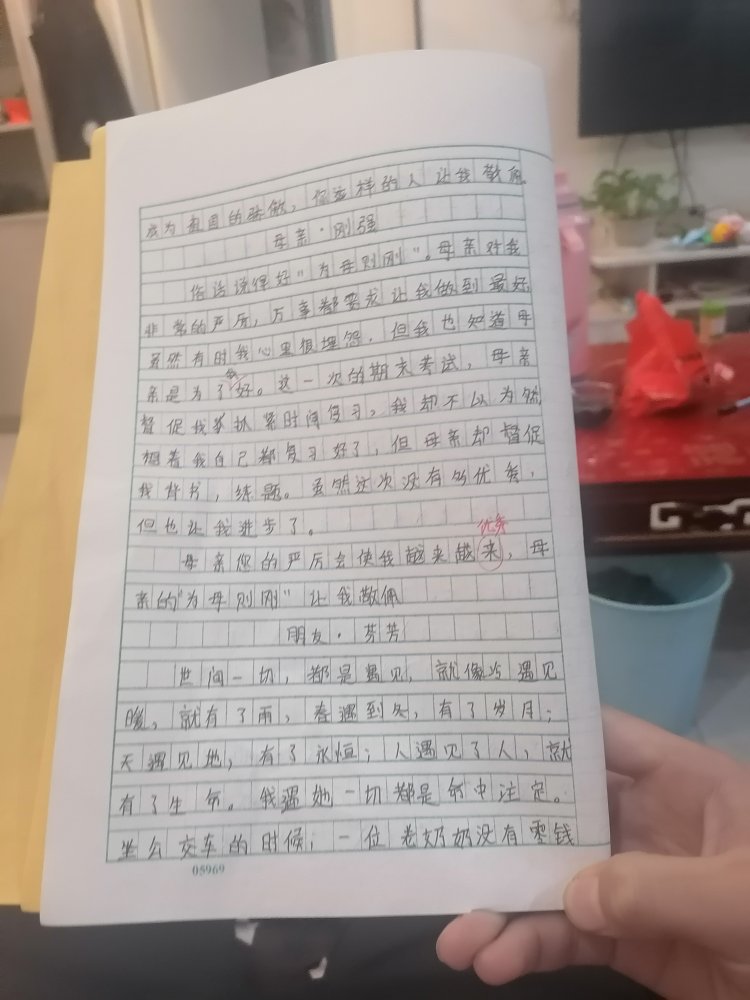 成为祖国的骄傲，你这样的人让我敬佩
母亲·刚强
俗话说得好"为母则刚"。母亲对我
非常的严厉，万事都要求让我做到最好
虽然有时我心里很埋怨，但我也知道母
亲是为了我好。这一次的期末考试，母亲
督促我抓紧时间复习，我却不以为然
想着我自己都复习好了，但母亲却督促
我背书，练题。虽然这次没有多优秀，
但也让我进步了。
优秀
母亲您的严厉会使我越来越来，母
亲的"为母则刚"让我敬佩
朋友·芳芳
世间一切，都是遇见，就像冷遇见
暖，就有了雨，春遇到冬，有了岁月；
天遇见地，有了永恒；人遇见了人，就
有了生命。我遇她一切都是命中注定。
坐公交车的时候，一位老奶奶没有零钱
05969